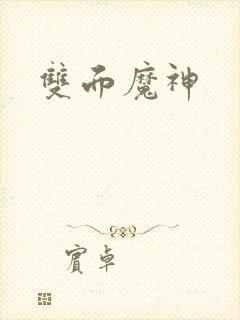 雙面魔神
賓卓